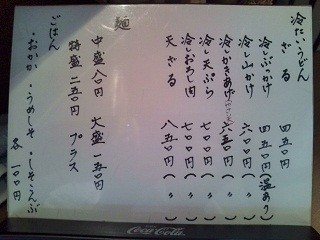 冷たいうどん
ざる 四五0円
冷しぶっかけ 四五0円(温あり)
冷し山かけ 六00円(〃)
冷しかきあげ 六五0円(〃)
冷し天ぷら 七00円(〃)
冷しおろし肉 七00円(〃)
天ざる 八五0円(〃)
麺
中盛 八0円 大盛 一五0円
特盛 二五0円 プラス
ごはん
・おかか・うめしそ・しそこんぶ
各 一00円
Coca-Cola